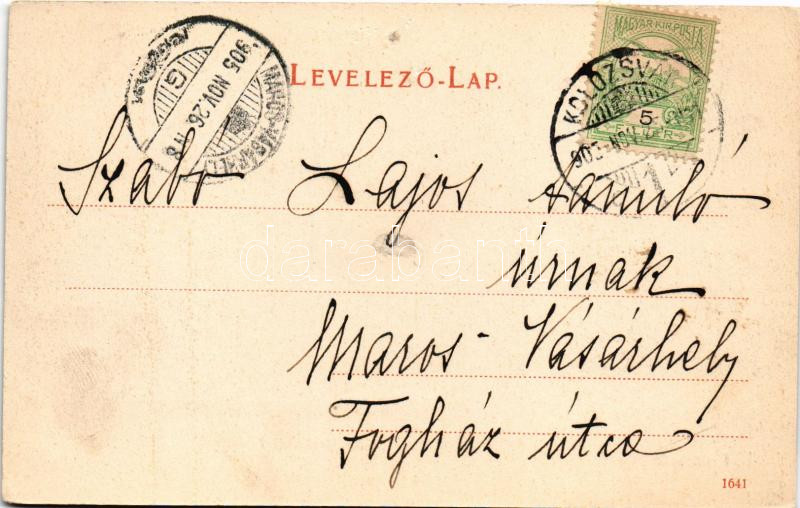 LEVELEZŐ-LAP.
MAGYAR KIR. POSTA
5
KOLOZSVÁR
MAROS-VÁSÁRHELY
905 NOV. 26
G
Szabo Lajos tanuló
úrnak
Maros-Vásárhely
Fogház útca
darabanth
1641